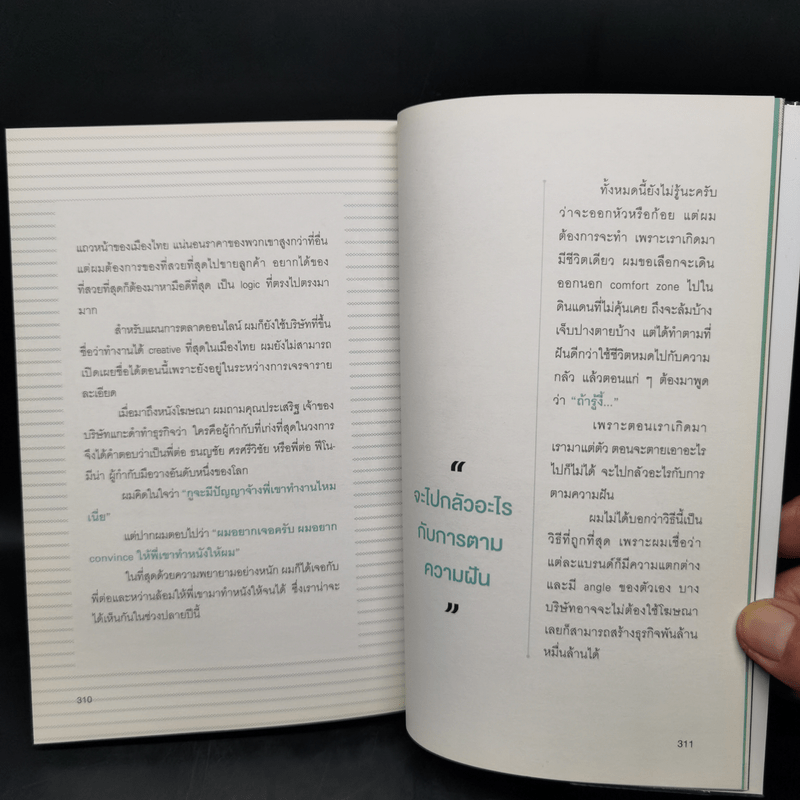 แถวหน้าของเมืองไทย แน่นอนราคาของพวกเขาสูงกว่าที่อื่น
แต่ผมต้องการของที่สวยที่สุดไปขายลูกค้า อยากได้ของ
ที่สวยที่สุดก็ต้องมาหามือดีที่สุด เป็น logic ที่ตรงไปตรงมา
มาก
สำหรับแผนการตลาดออนไลน์ ผมก็ยังใช้บริษัทที่ขึ้น
ชื่อว่าทำงานได้ creative ที่สุดในเมืองไทย ผมยังไม่สามารถ
เปิดเผยชื่อได้ตอนนี้เพราะยังอยู่ในระหว่างการเจรจาราย
ละเอียด
เมื่อมาถึงหนังโฆษณา ผมถามคุณประเสริฐ เจ้าของ
บริษัทแกะดำทำธุรกิจว่า ใครคือผู้กำกับที่เก่งที่สุดในวงการ
จึงได้คำตอบว่าเป็นพี่ต่อ ธนญชัย ศรศรีวิชัย หรือพี่ต่อ ฟีโน-
มีน่า ผู้กำกับมือวางอันดับหนึ่งของโลก
ผมคิดในใจว่า "กูจะมีปัญญาจ้างพี่เขาทำงานไหม
เนี่ย"
แต่ปากผมตอบไปว่า "ผมอยากเจอครับ ผมอยาก
convince ให้พี่เขาทำหนังให้ผม"
ในที่สุดด้วยความพยายามอย่างหนัก ผมก็ได้เจอกับ
พี่ต่อและหว่านล้อมให้พี่เขามาทำหนังให้จนได้ ซึ่งเราน่าจะ
ได้เห็นกันในช่วงปลายปีนี้
310
“
จะไปกลัวอะไร
กับการตาม
ความฝัน
”
ทั้งหมดนี้ยังไม่รู้นะครับ
ว่าจะออกหัวหรือก้อย แต่ผม
ต้องการจะทำ เพราะเราเกิดมา
มีชีวิตเดียว ผมขอเลือกจะเดิน
ออกนอก comfort zone ไปใน
ดินแดนที่ไม่คุ้นเคย ถึงจะล้มบ้าง
เจ็บปางตายบ้าง แต่ได้ทำตามที่
ฝันดีกว่าใช้ชีวิตหมดไปกับความ
กลัว แล้วตอนแก่ ๆ ต้องมาพูด
ว่า "ถ้ารู้งี้..."
เพราะตอนเราเกิดมา
เรามาแต่ตัว ตอนจะตายเอาอะไร
ไปก็ไม่ได้ จะไปกลัวอะไรกับการ
ตามความฝัน
ผมไม่ได้บอกว่าวิธีนี้เป็น
วิธีที่ถูกที่สุด เพราะผมเชื่อว่า
แต่ละแบรนด์ก็มีความแตกต่าง
และมี angle ของตัวเอง บาง
บริษัทอาจจะไม่ต้องใช้โฆษณา
เลยก็สามารถสร้างธุรกิจพันล้าน
หมื่นล้านได้
311